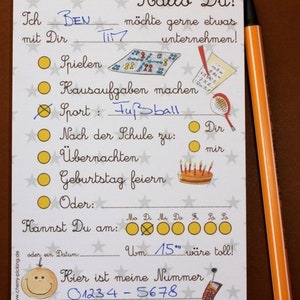 Hallo Du!
Ich BEN möchte gerne etwas
mit Dir TIM unternehmen!
Spielen
Hausaufgaben machen
Sport: Fußball
Nach der Schule zu: Dir
mir
Übernachten
Geburtstag feiern
Oder:
Mo Di Mi Do Fr Sa So
Kannst Du am:
oder ein Datum: Um 15⁰⁰ wäre toll!
Hier ist meine Nummer
01234 - 5678